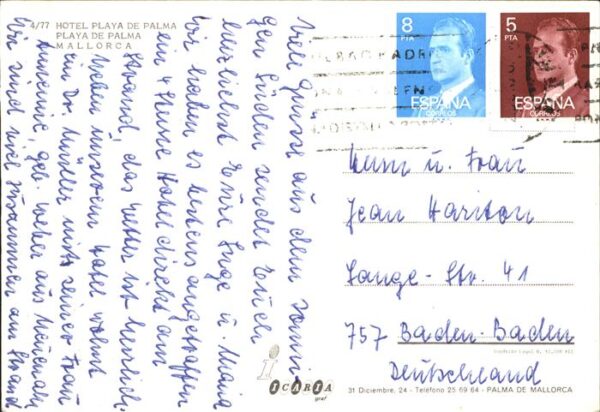 4/77 HOTEL PLAYA DE PALMA
PLAYA DE PALMA
MALLORCA
Viele Grüsse aus dem sonni-
gen Süden sendet Euch
herzlichst Eure Inge u. Maria
Wir haben es bestens angetroffen
ein 4 Sterne Hotel direkt am
Strand, das Wetter ist herrlich.
Neben unserem Hotel wohnt
ein Dr. Müller mit seiner Frau
Annemie, geb. Weber aus
Wir sind viel zusammen am Strand
8
PTA
ESPAÑA
CORREOS
5
PTA
ESPAÑA
CORREOS
Herrn u. Frau
Jean Hariton
Lange-Str. 41
757 Baden-Baden
Deutschland
ICARIA
graf
31 Diciembre, 24 - Teléfono 25 69 64 - PALMA DE MALLORCA